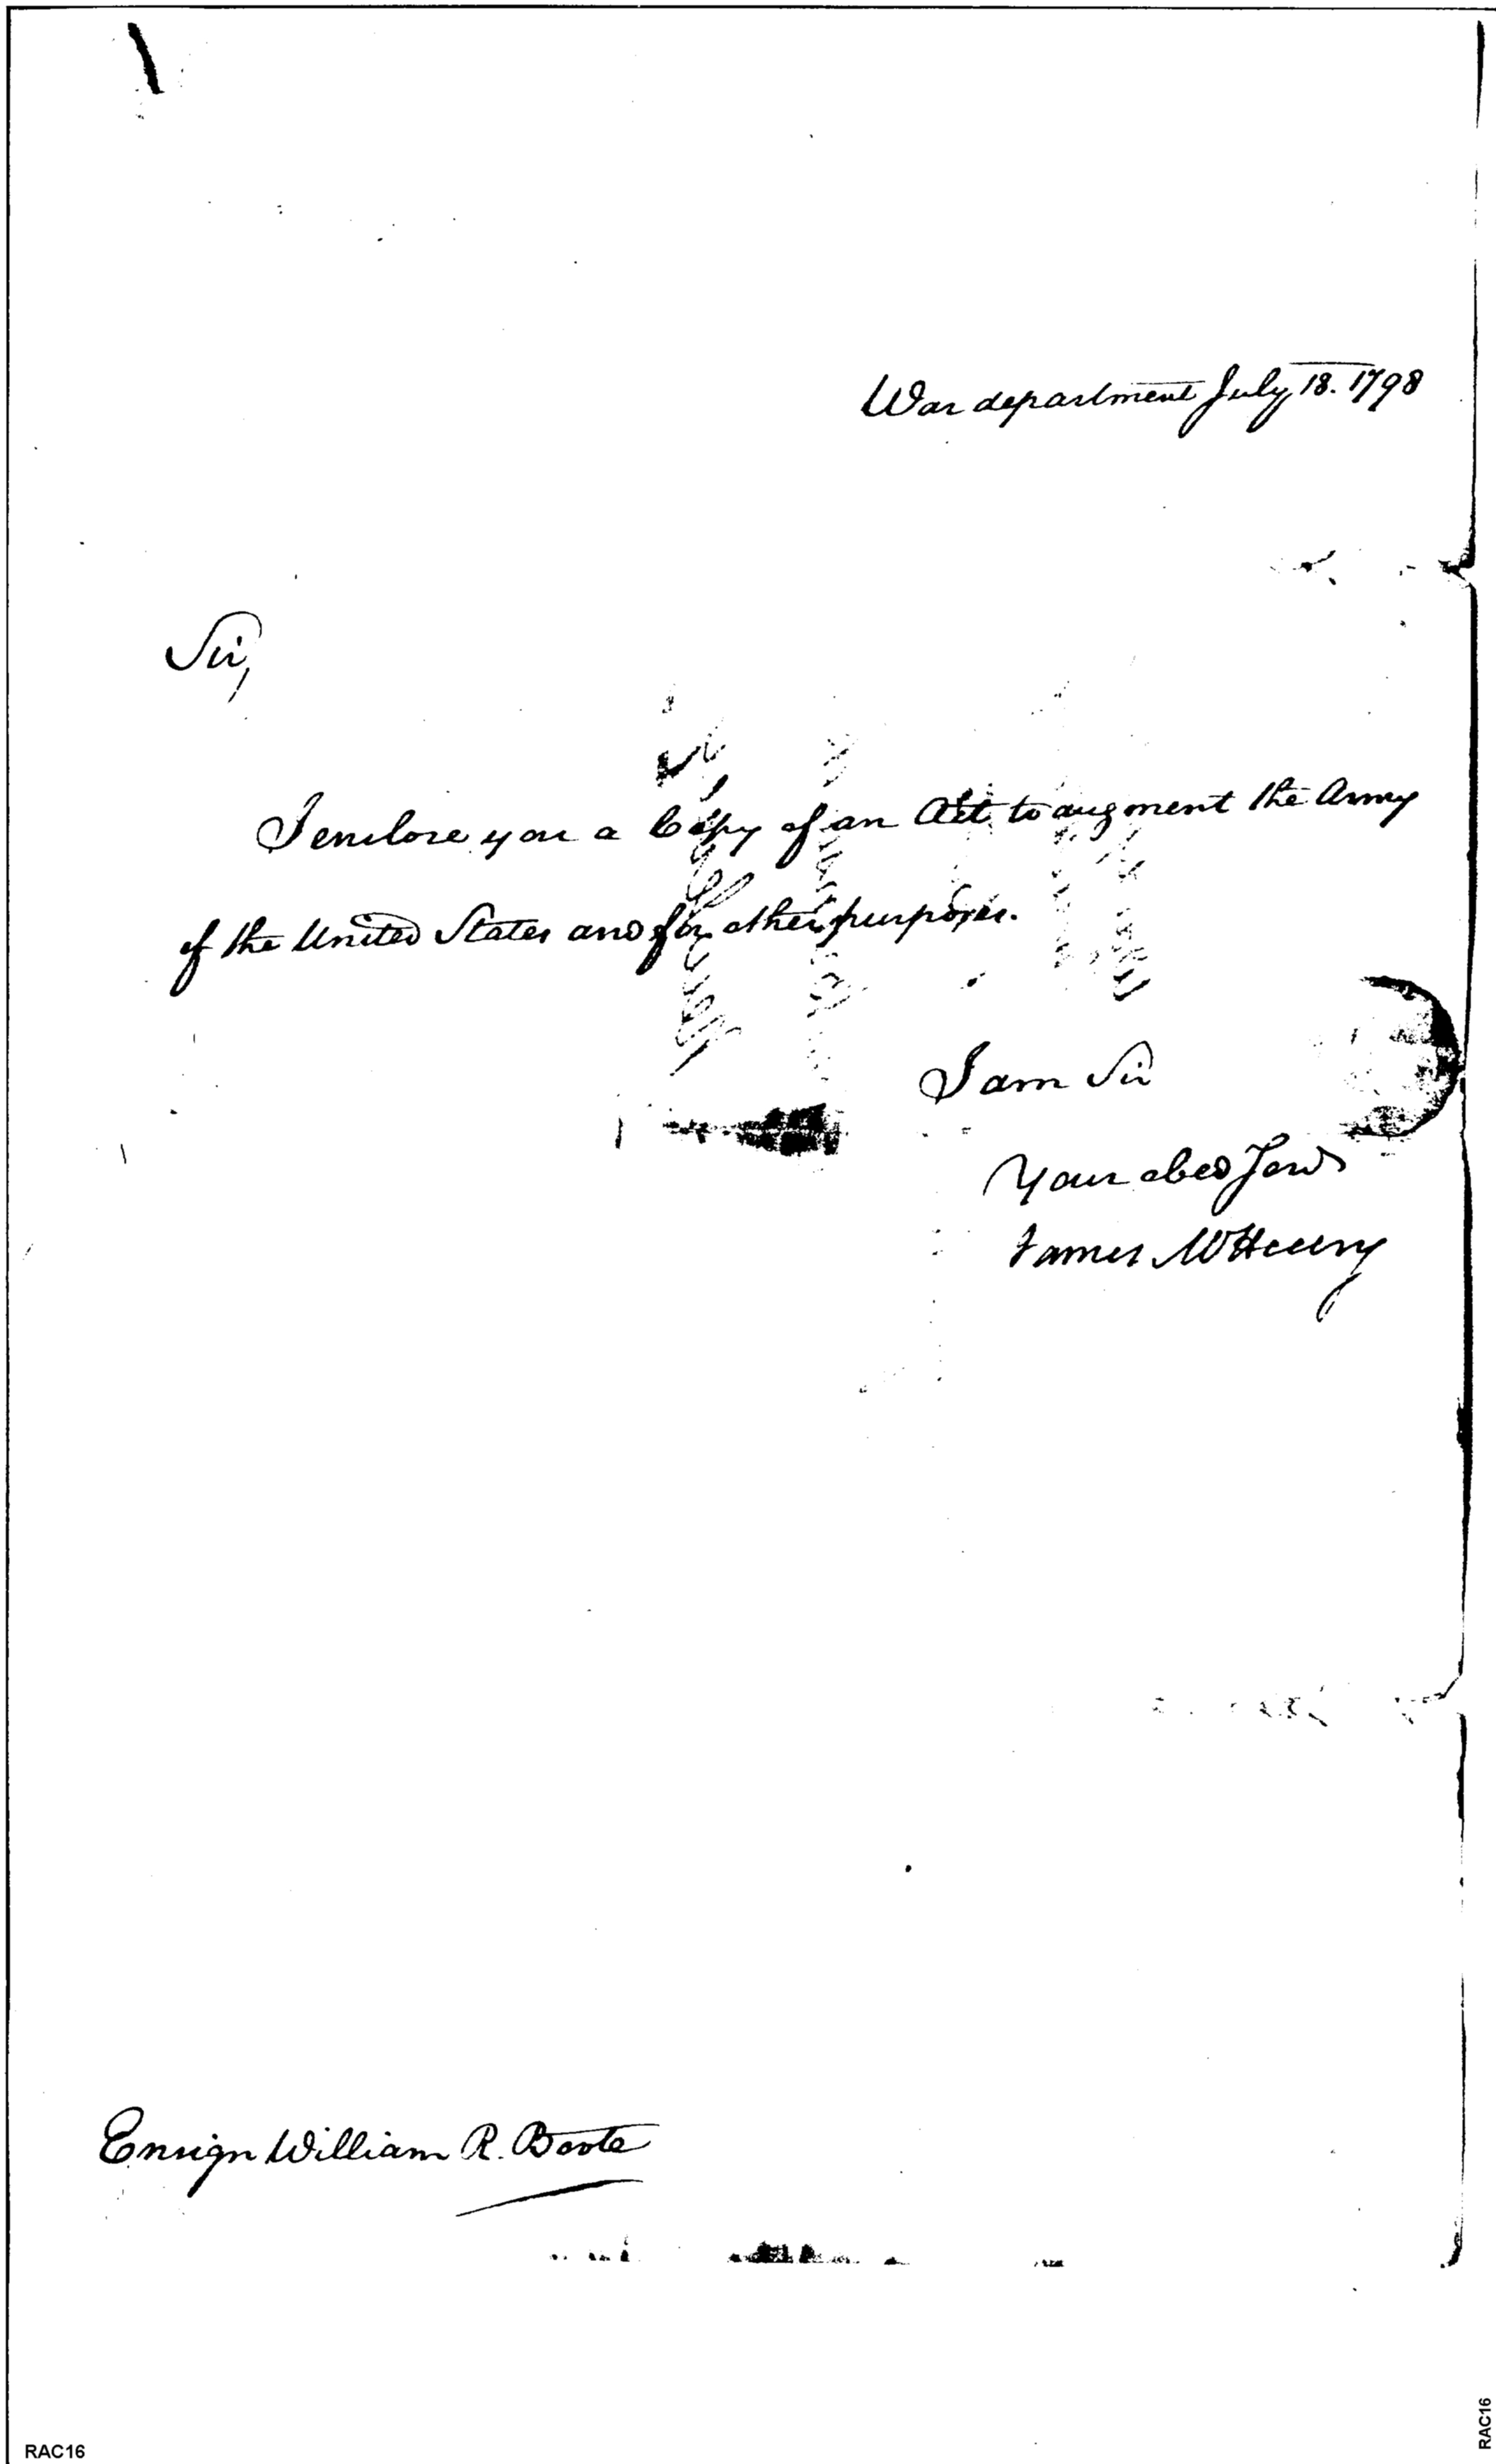 War department July 18. 1798
Sir,
I enclose you a Copy of an Act to augment the Army
of the United States and for other purposes.
I am Sir
Your obed Serv
James McHenry
Ensign William R. Boote
RAC16
RAC16